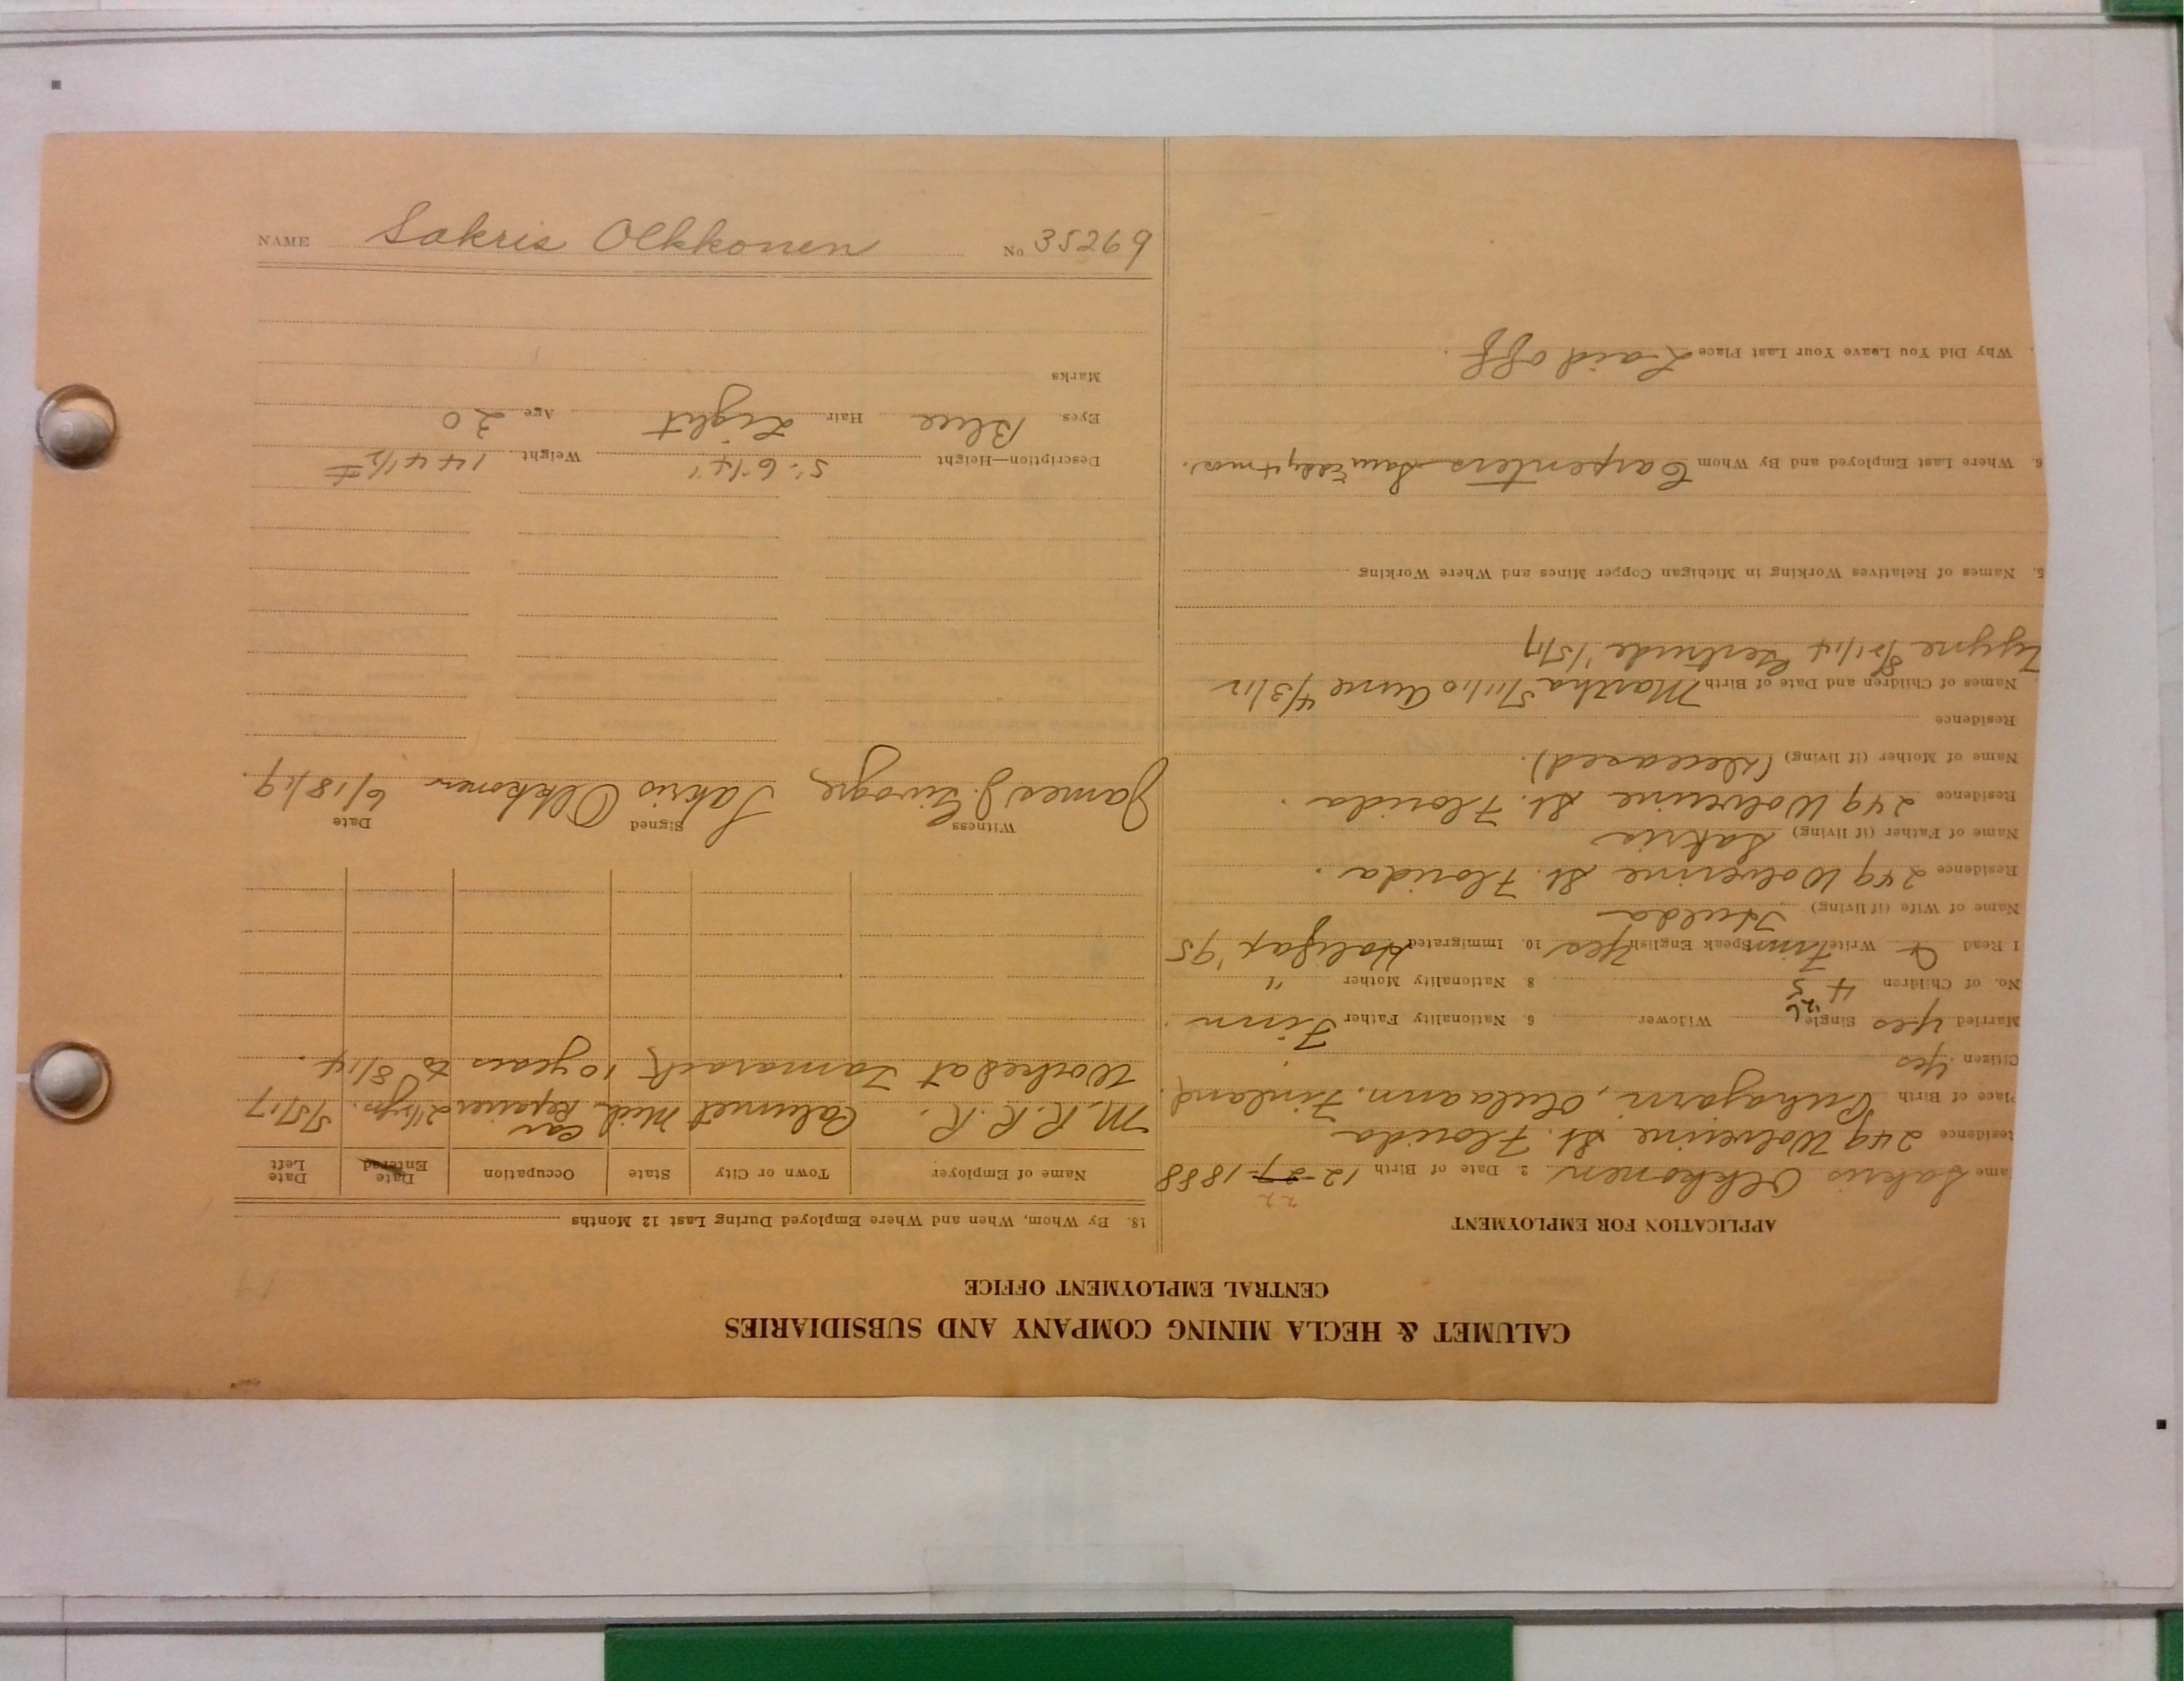 NAME Sakris Olkkonen No 35269
CALUMET & HECLA MINING COMPANY AND SUBSIDIARIES
CENTRAL EMPLOYMENT OFFICE
APPLICATION FOR EMPLOYMENT
ame Sakris Olkkonen 2. Date of Birth 12-27-1888
22
Residence 249 Wolverine St. Florida
Place of Birth Finland.
Citizen Yes
Married Yes Single Widower 6. Nationality Father Finn.
'26
No. of Children 4 5 8 Nationality Mother "
I Read & Write Finn Speak English Yes 10. Immigrated Halifax '95
Name of Wife (if living) Hulda
Residence 249 Wolverine St. Florida.
Name of Father (if living) Sakris
Residence 249 Wolverine St. Florida.
Name of Mother (if living) (deceased).
Residence
Names of Children and Date of Birth Martha 5/11/10 Anne 4/3/12
8/21/14 Gertrude 1/5/17
5. Names of Relatives Working in Michigan Copper Mines and Where Working
6. Where Last Employed and By Whom Carpenters Sam 4 mos.
. Why Did You Leave Your Last Place Laid off.
18. By Whom, When and Where Employed During Last 12 Months
Name of Employer Town or City State Occupation Date Entered Date Left
M.R.R.R. Calumet Mich Car Repairer 2 1/2 yrs. 5/5/17
Worked at Tamarack 10 years to 8/14.
Witness Signed Date
James J. Sakris Olkkonen 6/18/19.
Description—Height 5'-6 1/4" Weight 144 1/2 #
Eyes Blue Hair Light Age 30
Marks